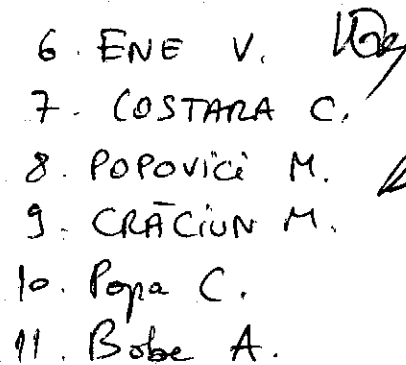 6. ENE V.
7. COSTARA C.
8. POPOVICI M.
9. CRĂCIUN M.
10. Popa C.
11. Bobe A.